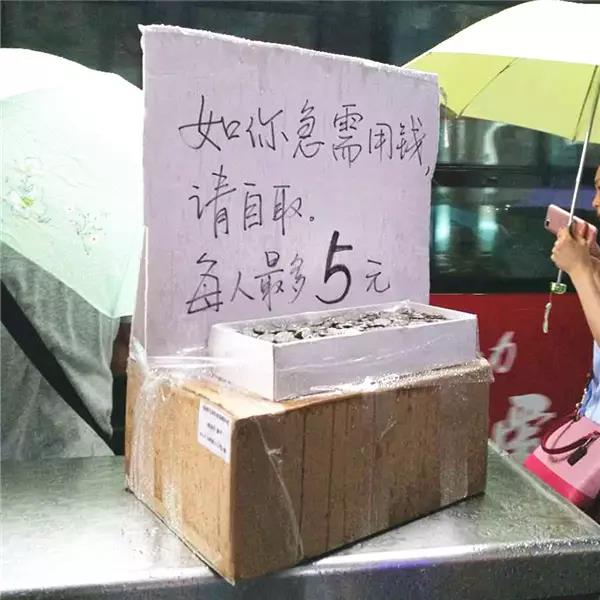 如你急需用钱,
请自取。
每人最多5元